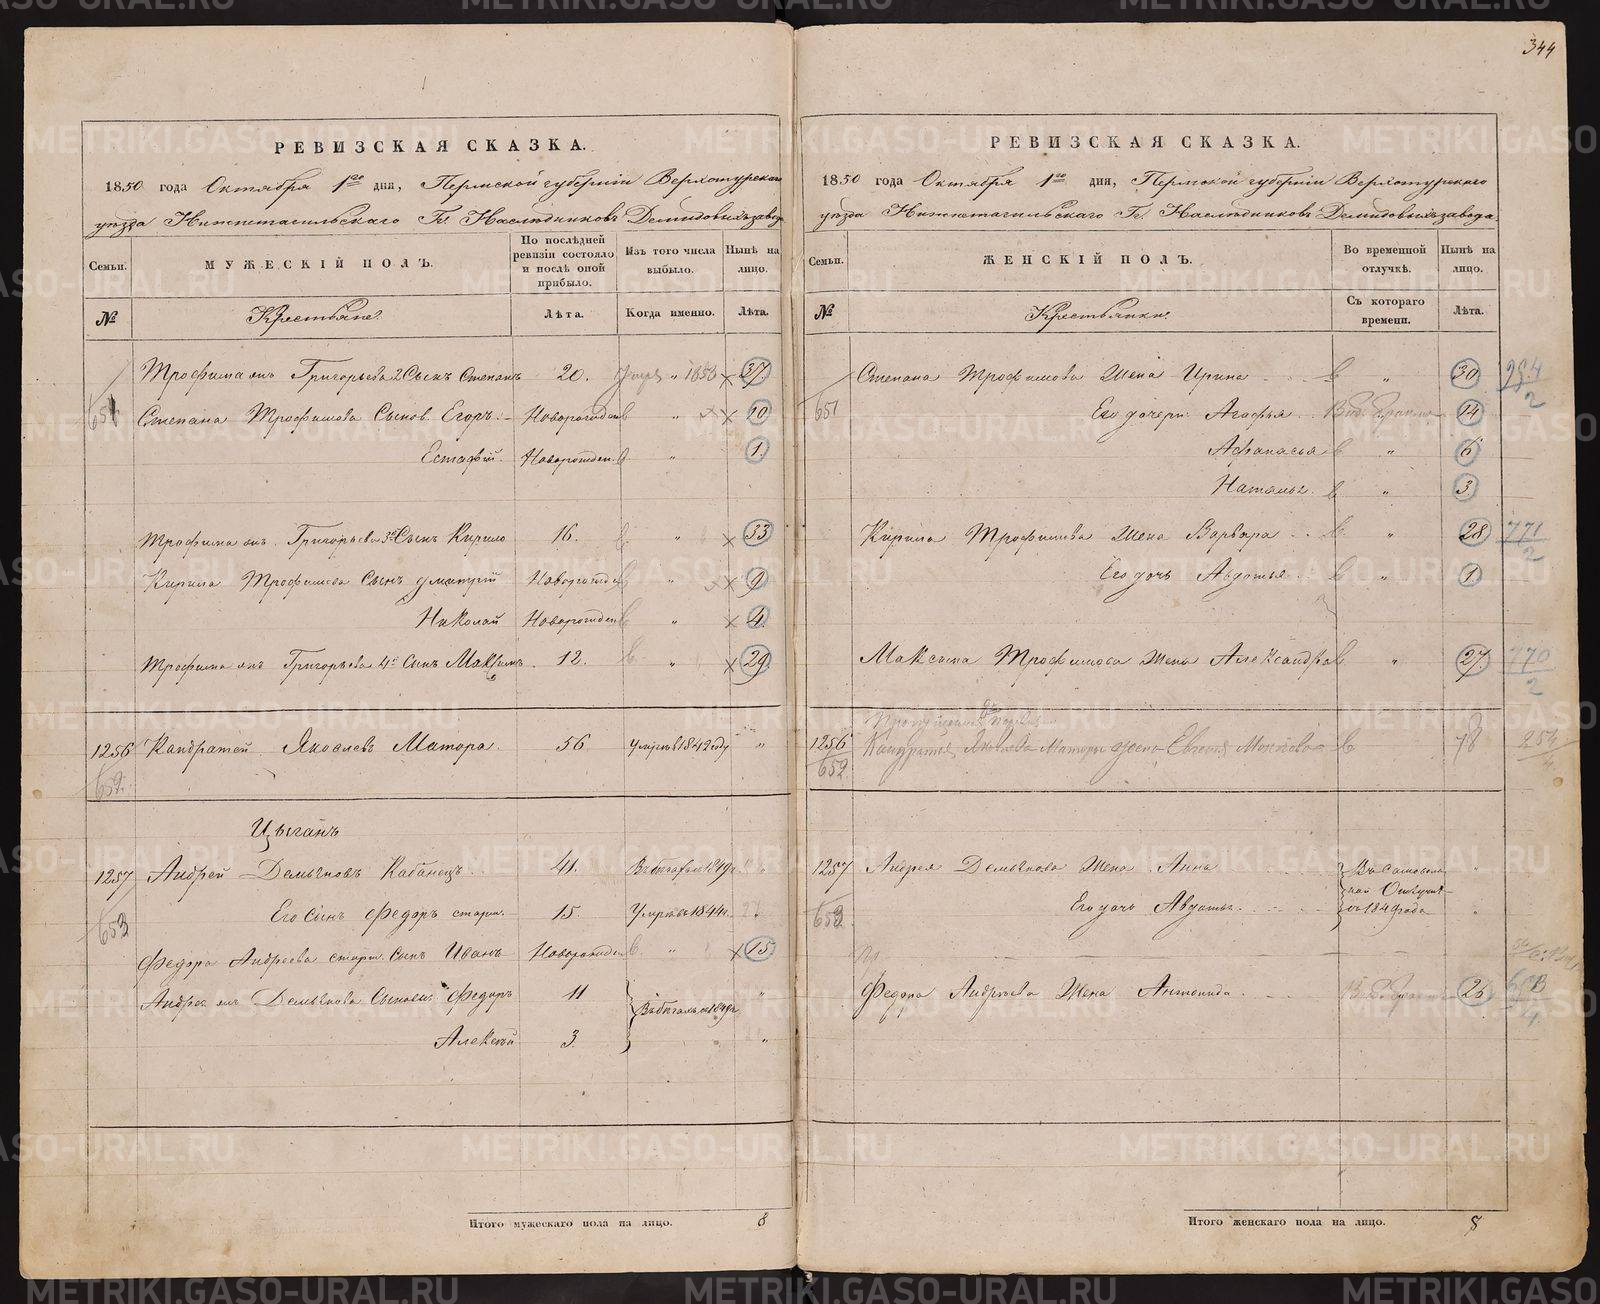 344
РЕВИЗСКАЯ СКАЗКА.
1850 года Октября 1го дня, Пермской губернiи Верхотурскаго
уѣзда Нижнетагильскаго Гг. Наслѣдниковъ Демидовыхъ завода
Семьи.
МУЖЕСКIЙ ПОЛЪ.
По послѣдней ревизiи состояло и послѣ оной прибыло.
Изъ того числа выбыло.
Нынѣ на лицо.
№
Крестьяне.
Лѣта.
Когда именно.
Лѣта.
651 Трофима Григорьева 2 Сынъ Степанъ 20. 1850 37
Степана Трофимова Сынов. Егоръ. Новорожден „ 10
Естафiй. Новорожден. „ 1
Трофима Григорьева 3й Сынъ Кирило 16. „ 33
Кирила Трофимова Сынъ Дмитрiй Новорожден „ 9
Николай Новорожден „ 4
Трофима Григорьева 4й Сынъ Максимъ 12. „ 29
1256 Кандратей Яковлевъ Матора. 56 Умеръ въ 1842 году „
652
Цыганъ
1257 Андрей Демьяновъ Кабанецъ. 41. Въ бѣгахъ съ 1849г „
653 Его Сынъ Федоръ старш. 15. Умеръ въ 1844г.
Федора Андреева старш. Сынъ Иванъ Новорожден „ 15
Андрея Демьянова Сыновья Федоръ 11 „
Въ бѣгахъ съ 1849г
Алексѣй 3. „
Итого мужескаго пола на лицо. 8
РЕВИЗСКАЯ СКАЗКА.
1850 года Октября 1го дня, Пермской губернiи Верхотурскаго
уѣзда Нижнетагильскаго Гг. Наслѣдниковъ Демидовыхъ завода.
Семьи.
ЖЕНСКIЙ ПОЛЪ.
Во временной отлучкѣ.
Нынѣ на лицо.
№
Крестьянки.
Съ котораго времени.
Лѣта.
651 Степана Трофимова Жена Ирина „ 30
Его дочери Агафья 14
Афанасья „ 6
Наталья. „ 3
Кирила Трофимова Жена Варвара „ 28 771/2
Его дочь Авдотья „ 1
Максима Трофимова Жена Александра „ 27 770/2
1256 Кандратья Яковлева Маторы жена Евгенiя 78 254
652
1257 Андрея Демьянова Жена Анна Въ самоволь „
ной Отлучкѣ
653 Его дочь Авдотья съ 1849 года „
Федора Андреева Жена Антонида 26
Итого женскаго пола на лицо. 8
METRIKI.GASO-URAL.RU